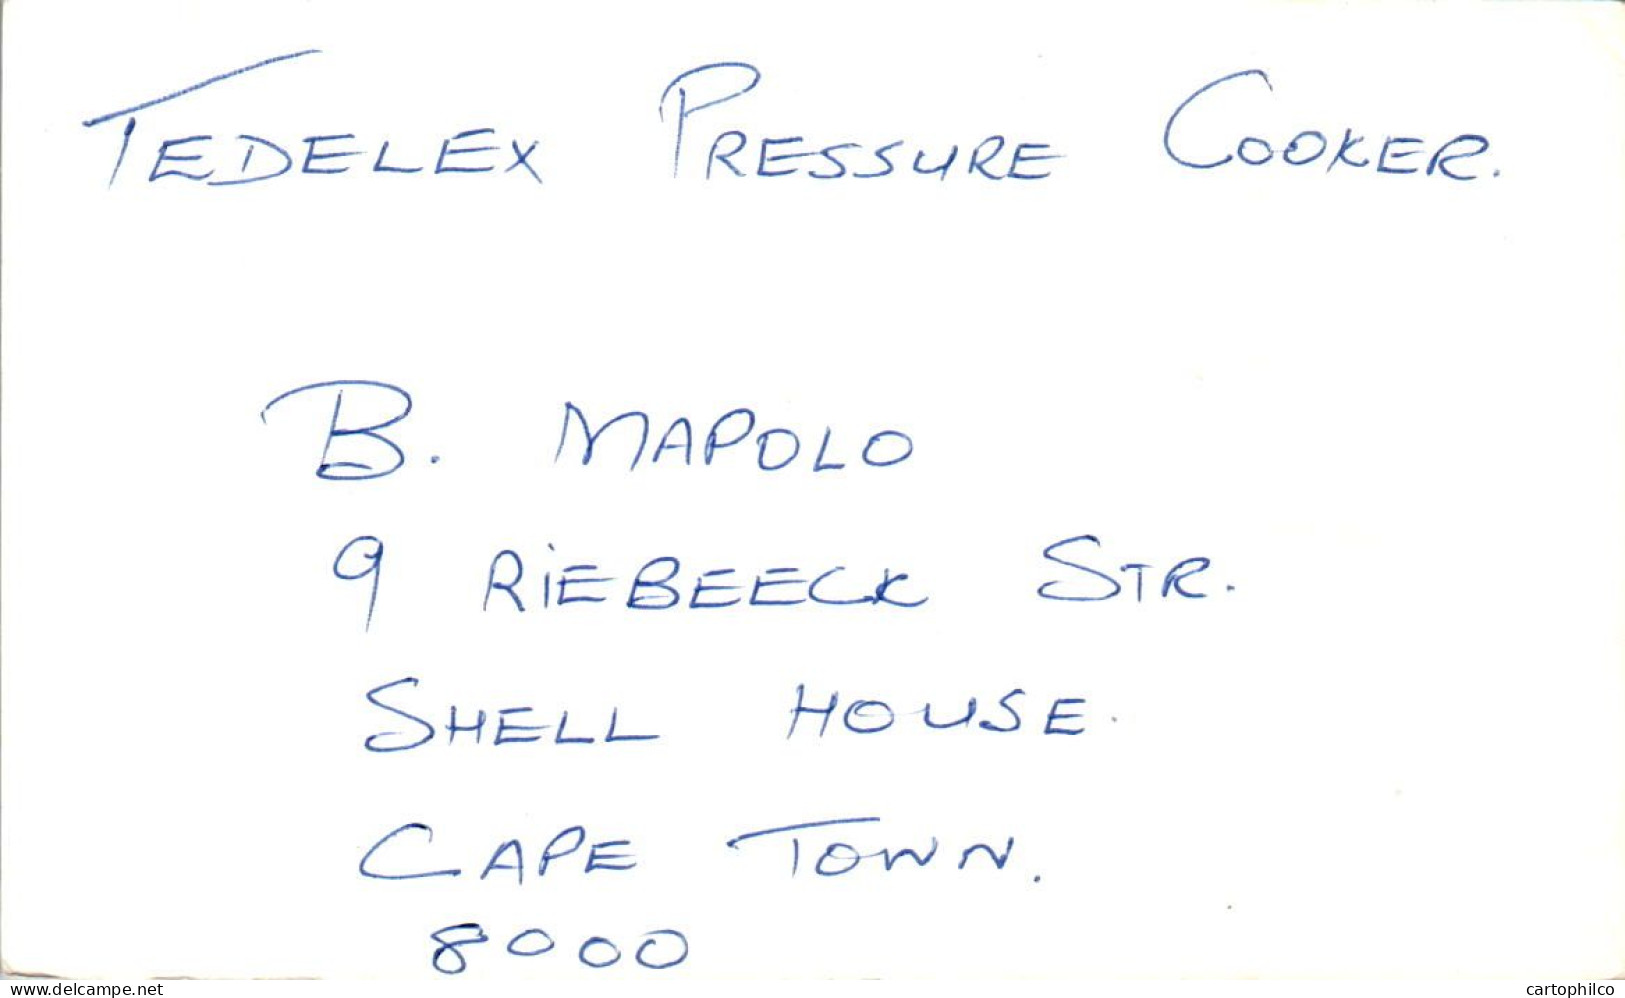 TEDELEX PRESSURE COOKER.
B. MAPOLO
9 RIEBEECK STR.
SHELL HOUSE.
CAPE TOWN.
8000
www.delcampe.net
cartophilco